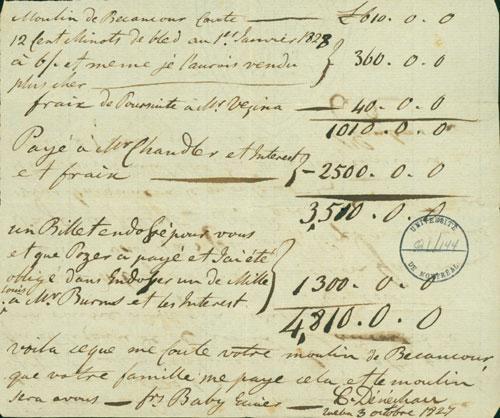 Moulin de Becancour Coute — £610.0.0
12 Cent Minots de bled au 1er Janvier 1828
à 6/. et meme je l'aurois vendu 360.0.0
plus cher
fraix de Poursuite a Mr. Vezina — 40.0.0
1010.0.0
Payé à Mr Chandler et Interest
et fraix — 2500.0.0
3,510.0.0
un Billet endossé pour vous
et que Pozer a payé et J'ai été
obligé dans Endosser un de Mille
Louis
a Mr Burns et les Interest 1300.0.0
4,810.0.0
UNIVERSITÉ
DE MONTRÉAL
voila ce que me Coute votre moulin de Becancour
que votre famille me paye cela et le moulin
sera a vous — frs Baby
3 octobre 1827